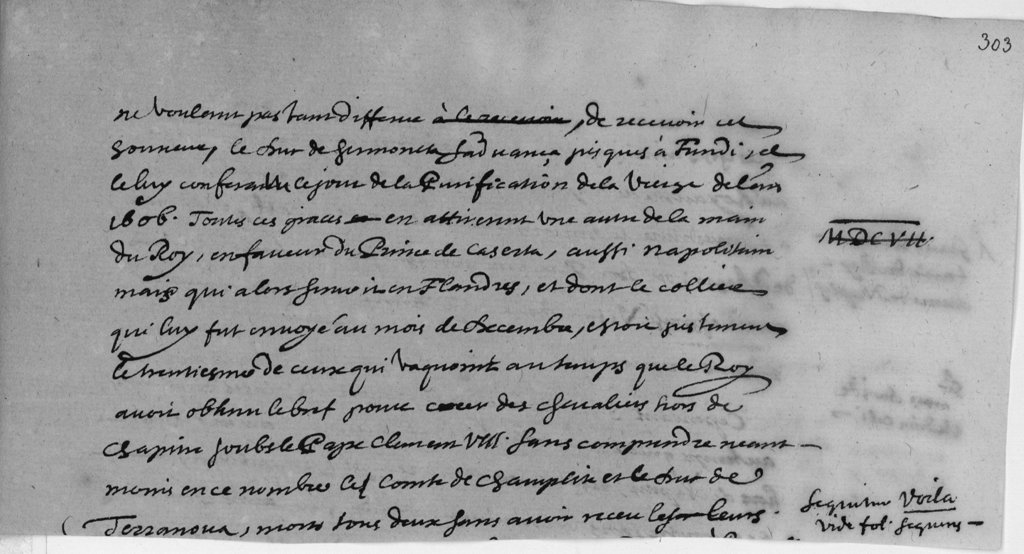 303
ne voulant pas tant differe à le recevoir, de recevoir cet
honneur, le duc de Sermoneta s'advança jusques à Fundi, et
le luy confera le jour de la Purification de la Vierge de l'an
1606. Toutes ces graces en attirerent une autre de la main
du Roy, en faveur du Prince de Caserta, aussi napolitain
MDCVII.
mais qui alors servoit en Flandres, et dont le collier
qui luy fut envoyé au mois de decembre, estoit justement
le trentiesme de ceux qui vaquoint au temps que le Roy
avoit obtenu le bref pour creer des chevaliers hors de
chapitre soubs le Pape Clement VIII. sans comprendre neant-
moins en ce nombre le Comte de Champlite et le duc de
Terranova, morts tous deux sans avoir receu leurs
sequitur Voila
vide fol. sequens